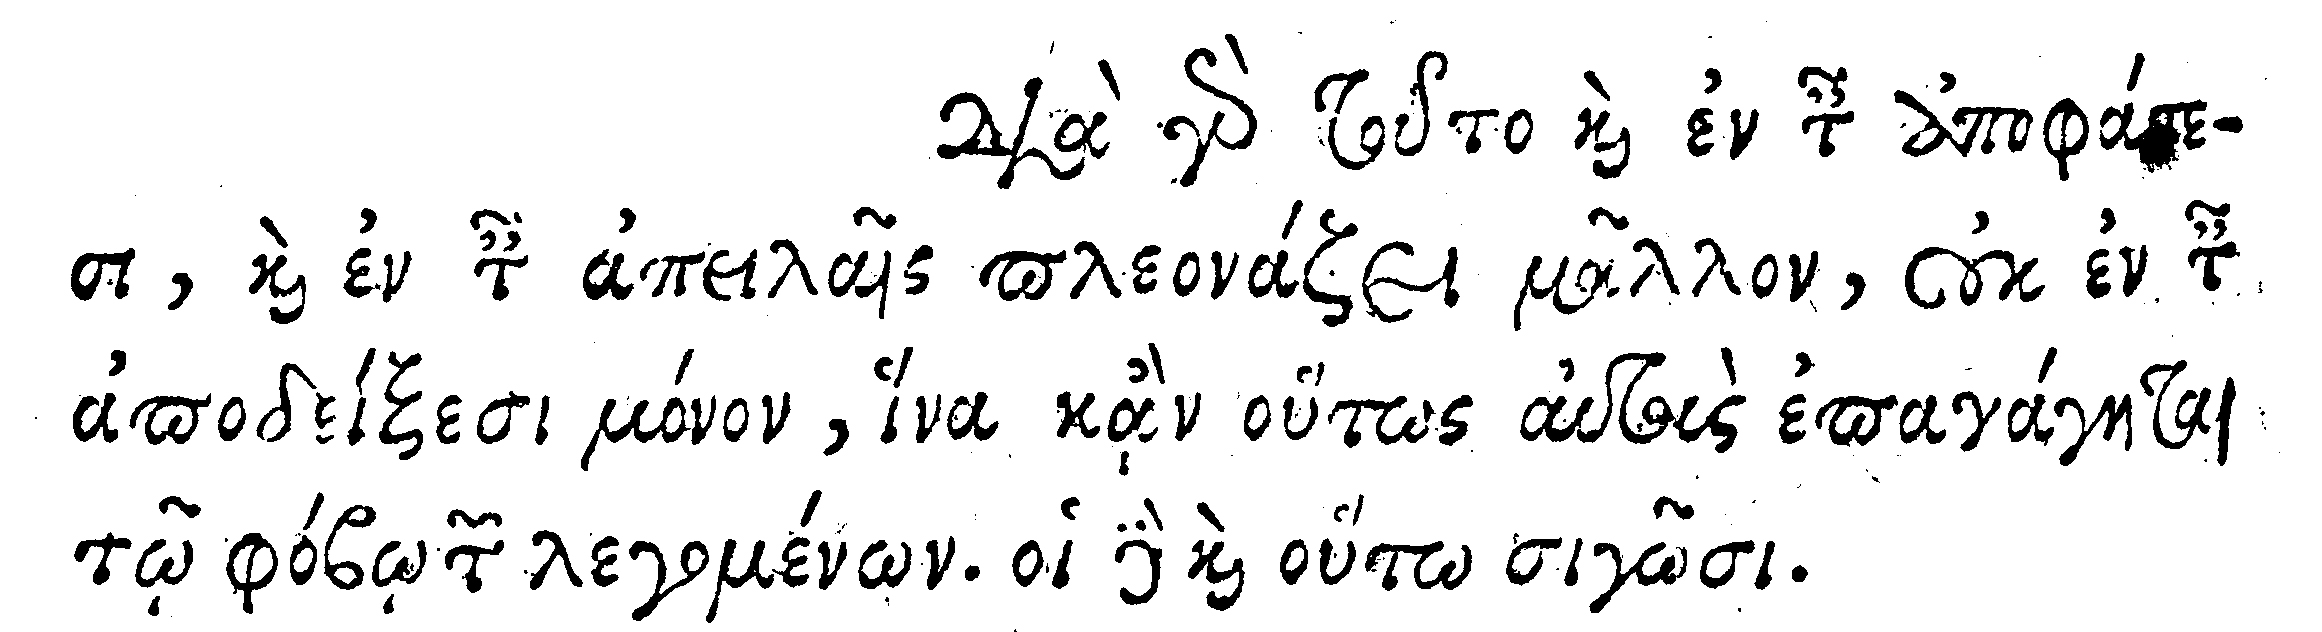 Διὰ γὰρ τοῦτο καὶ ἐν ταῖς ἀποφάσε-
σι, καὶ ἐν ταῖς ἀπειλαῖς πλεονάζει μᾶλλον, οὐκ ἐν ταῖς
ἀποδείξεσι μόνον, ἵνα κᾂν οὕτως αὐτοὺς ἐπαγάγηται
τῷ φόβῳ τῶν λεγομένων. οἱ δὲ καὶ οὕτω σιγῶσι.